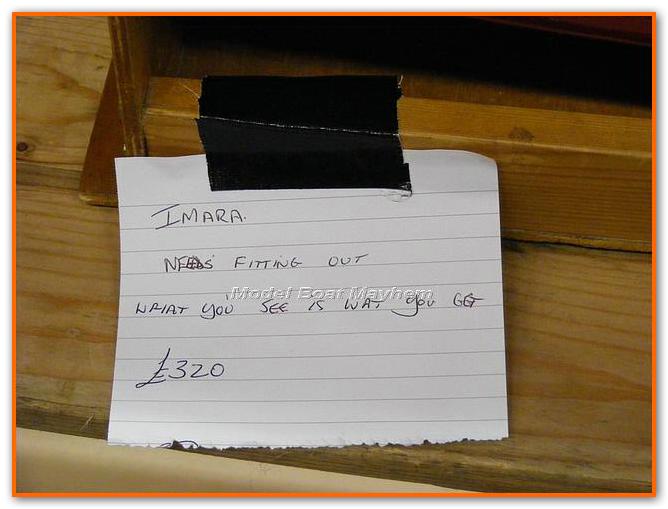 IMARA.
NEEDS FITTING OUT
Model Boat Mayhem
WHAT YOU SEE IS WAT YOU GET
£320